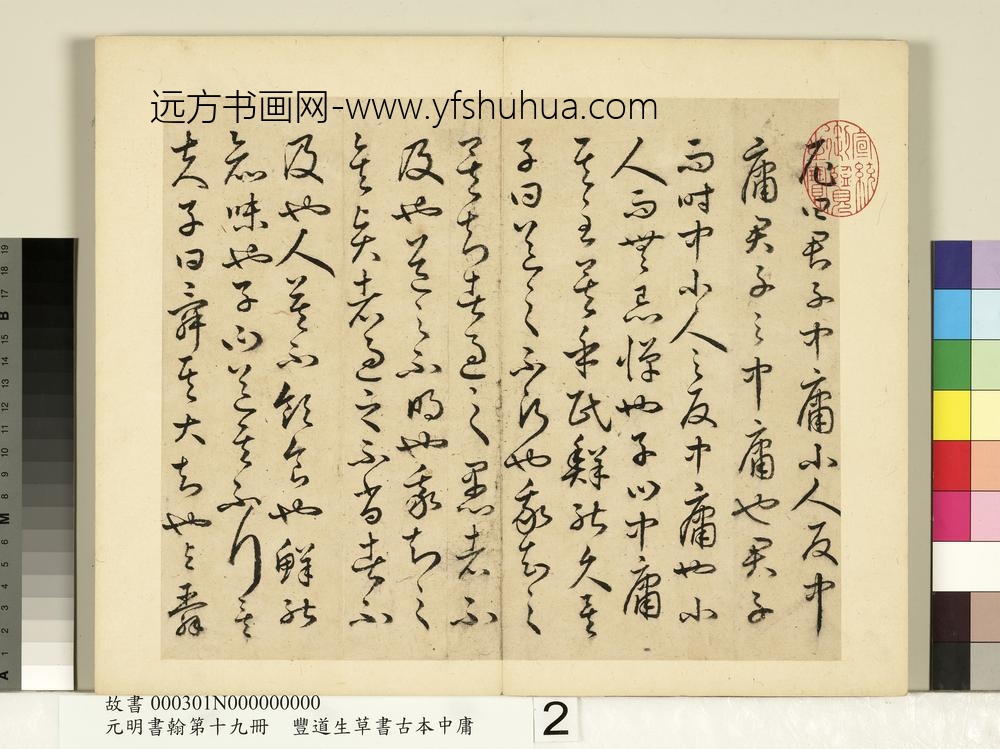 远方书画网-www.yfshuhua.com
尼曰君子中庸小人反中
庸君子之中庸也君子
而時中小人之反中庸也小
人而無忌憚也子曰中庸
其至矣乎民鮮能久矣
子曰道之不行也我知之
矣知者過之愚者不
及也道之不明也我知之
矣賢者過之不肖者不
及也人莫不飲食也鮮能
知味也子曰道其不行矣
夫子曰舜其大知也與舜
故書 000301N000000000
元明書翰第十九冊 豐道生草書古本中庸
2
19
18
17
B
16
15
14
13
12
11
10
9
8
7
M
6
5
4
3
2
1
A